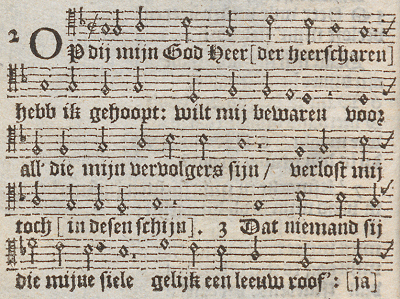 2 OP dij mijn God Heer [der heerscharen]
hebb ik gehoopt: wilt mij bewaren voor
all' die mijn vervolgers sijn / verlost mij
toch [in desen schijn]. 3 Dat niemand sij
die mijne siele gelijk een leeuw roof': [ja]